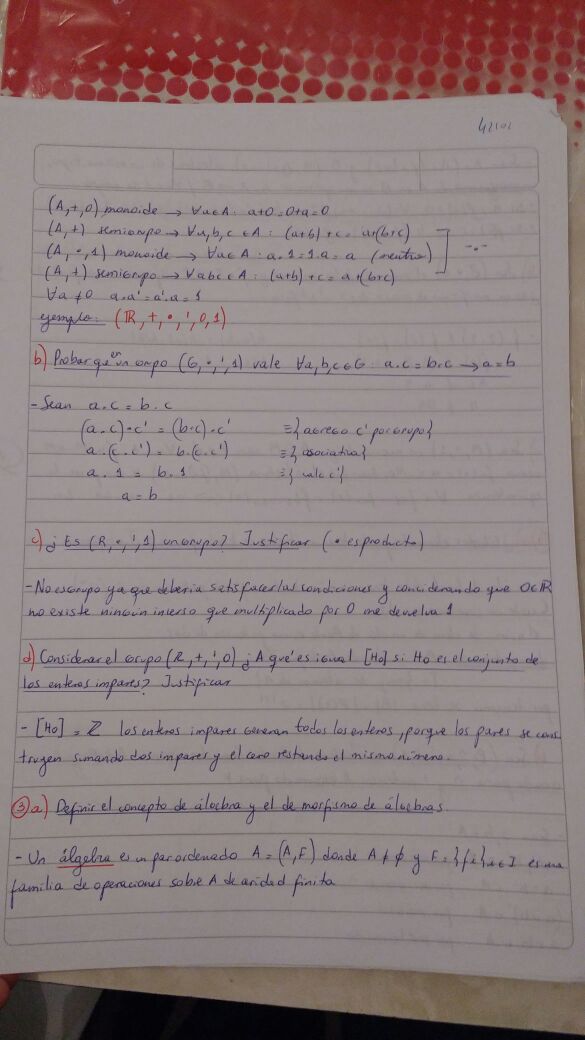 (A,+,0) monoide → ∀a∈A: a+0=0+a=0
(A,+) semigrupo → ∀a,b,c ∈A: (a+b)+c= a+(b+c)
(A,•,1) monoide → ∀a∈A: a.1=1.a=a (neutro)
(A,+) semigrupo → ∀abc∈A: (a+b)+c=a+(b+c)
∀a≠0 a.a'=a'.a=1
ejemplo: (R,+,•,',0,1)
b) Probar que en un grupo (G,•,',1) vale ∀a,b,c∈G: a.c=b.c → a=b
- Sean a.c=b.c
(a.c)•c' = (b.c).c' ≡{agrego c' por grupo}
a.(c.c') = b.(c.c') ≡{asociativa}
a.1 = b.1 ≡{vale c'}
a=b
c) ¿Es (R,•,',1) un grupo? Justificar (• es producto)
- No es grupo ya que deberia satisfacer las condiciones y conciderando que 0∈R
no existe ningun inverso que multiplicado por 0 me devuelva 1
d) Considerar el grupo (R,+,',0) ¿A qué es igual [Ho] si Ho es el conjunto de
los enteros impares? Justificar
- [Ho] = Z los enteros impares generan todos los enteros, porque los pares se cons
truyen sumando dos impares y el cero restando el mismo número.
3 a) Definir el concepto de álgebra y el de morfismo de álgebras
- Un álgebra es un par ordenado A = (A,F) donde A ≠ ϕ y F={fi}i∈I es una
familia de operaciones sobre A de aridad finita